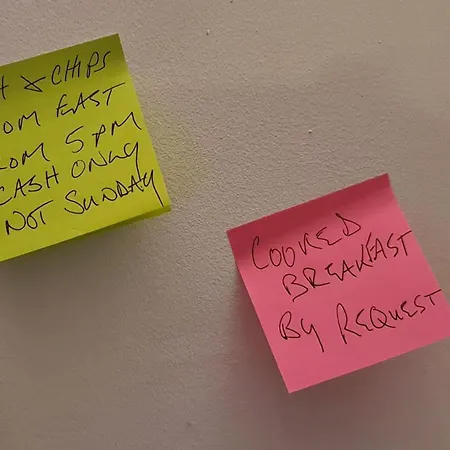 H & CHIPS
OM EAST
ROM 5 PM
CASH ONLY
NOT SUNDAY
COOKED
BREAKFAST
BY REQUEST